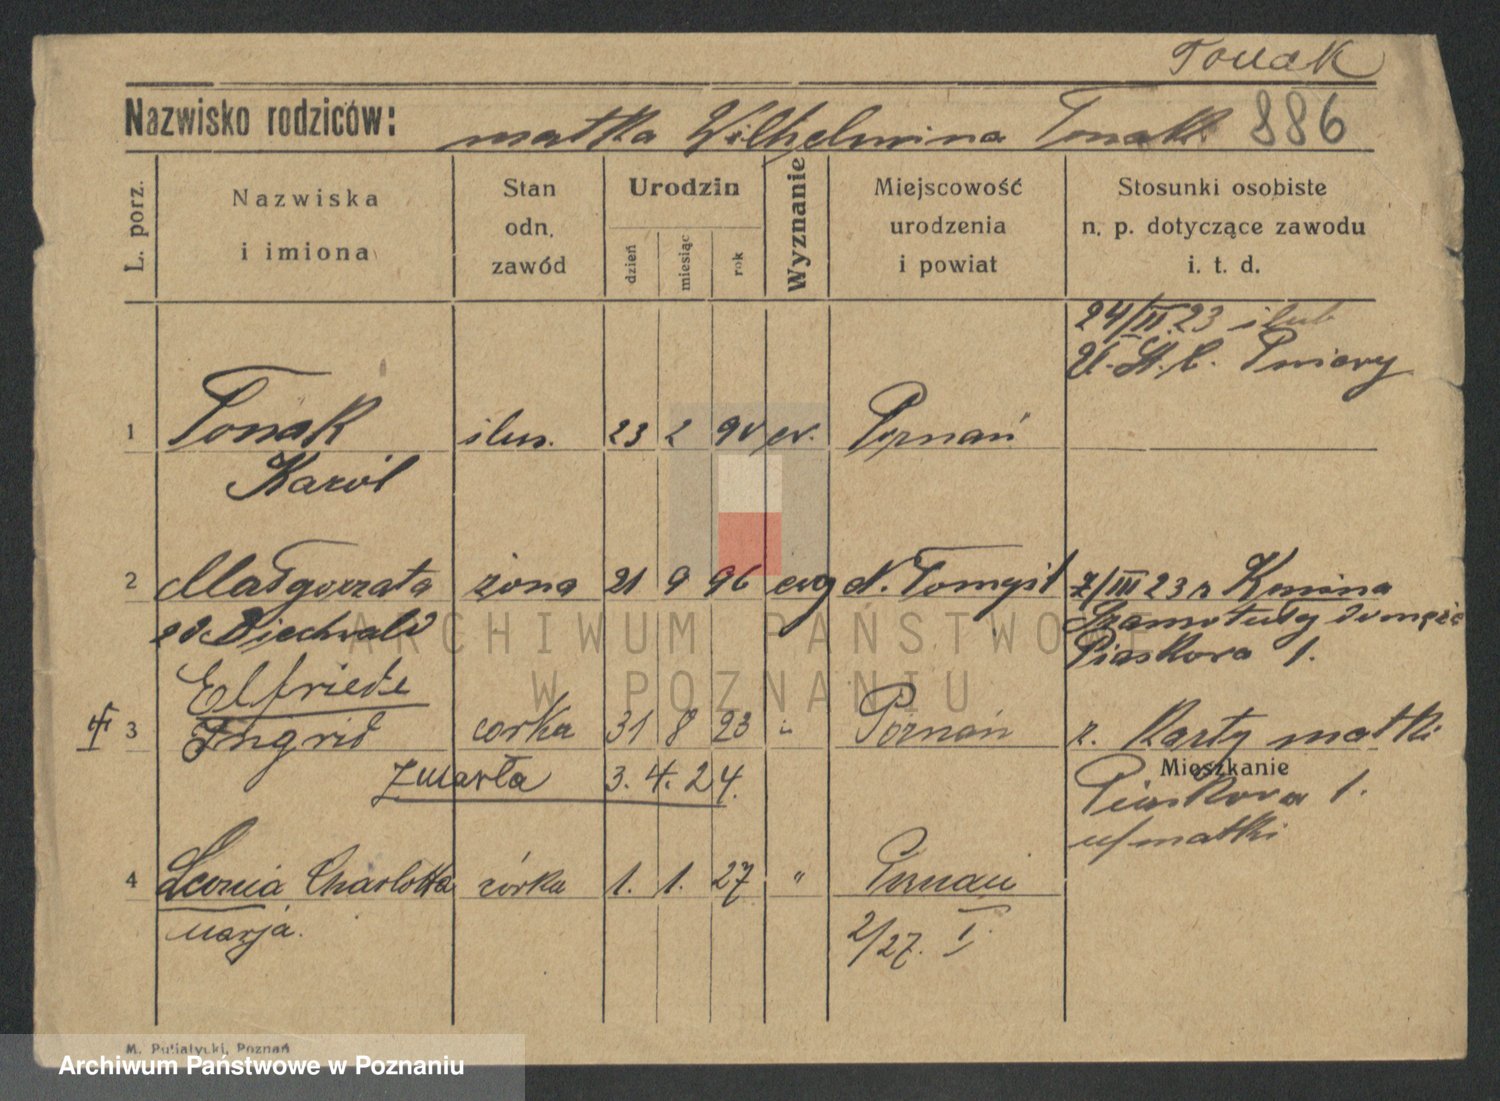 Tonak
Nazwisko rodziców: matka Wilhelmina Tonak 886
L. porz.
Nazwiska
i imiona
Stan
odn.
zawód
Urodzin
dzień
miesiąc
rok
Wyznanie
Miejscowość
urodzenia
i powiat
Stosunki osobiste
n. p. dotyczące zawodu
i. t. d.
24/II 23 ślub
U. St. C. Pniewy
1 Tonak ślus. 23 2 90 ev. Poznań
Karol
2 Małgorzata żona 21 9 96 ewg N. Tomyśl 7/III 23 z Konina
Szamotuły do męża
Piaskowa 1.
Elfriede
3 Ingrid corka 31 8 23 " Poznań z. Karty matki
zmarła 3. 4. 24.
Mieszkanie
Piaskowa 1.
u/matki
4 Leonia Charlotta córka 1. 1. 27 " Poznań
Marja.
2/27. I.
M. Putiatycki, Poznań
ARCHIWUM PAŃSTWOWE
W POZNANIU
Archiwum Państwowe w Poznaniu